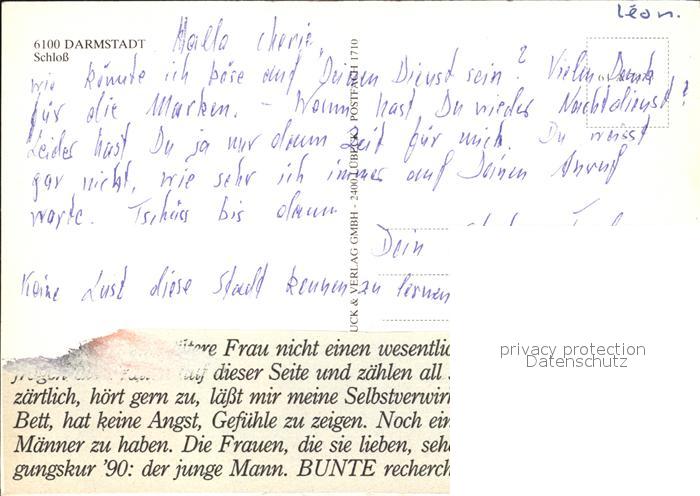 Léon.
6100 DARMSTADT
Schloß
Hallo cherie,
wie könnte ich böse auf Deinen Dienst sein? Vielen Dank
für die Marken. - Wann hast Du wieder Nachtdienst?
Leider hast Du ja nur dann Zeit für mich. Du weisst
gar nicht, wie sehr ich immer auf Deinen Anruf
warte. Tschüss bis dann
Dein
Keine Lust diese Stadt kennen zu lernen
UCK & VERLAG GMBH - 2400 LÜBECK POSTFACH 1710
privacy protection
Datenschutz
ältere Frau nicht einen wesentlic
auf dieser Seite und zählen all
zärtlich, hört gern zu, läßt mir meine Selbstverwir
Bett, hat keine Angst, Gefühle zu zeigen. Noch ein
Männer zu haben. Die Frauen, die sie lieben, seh
gungskur '90: der junge Mann. BUNTE recherch